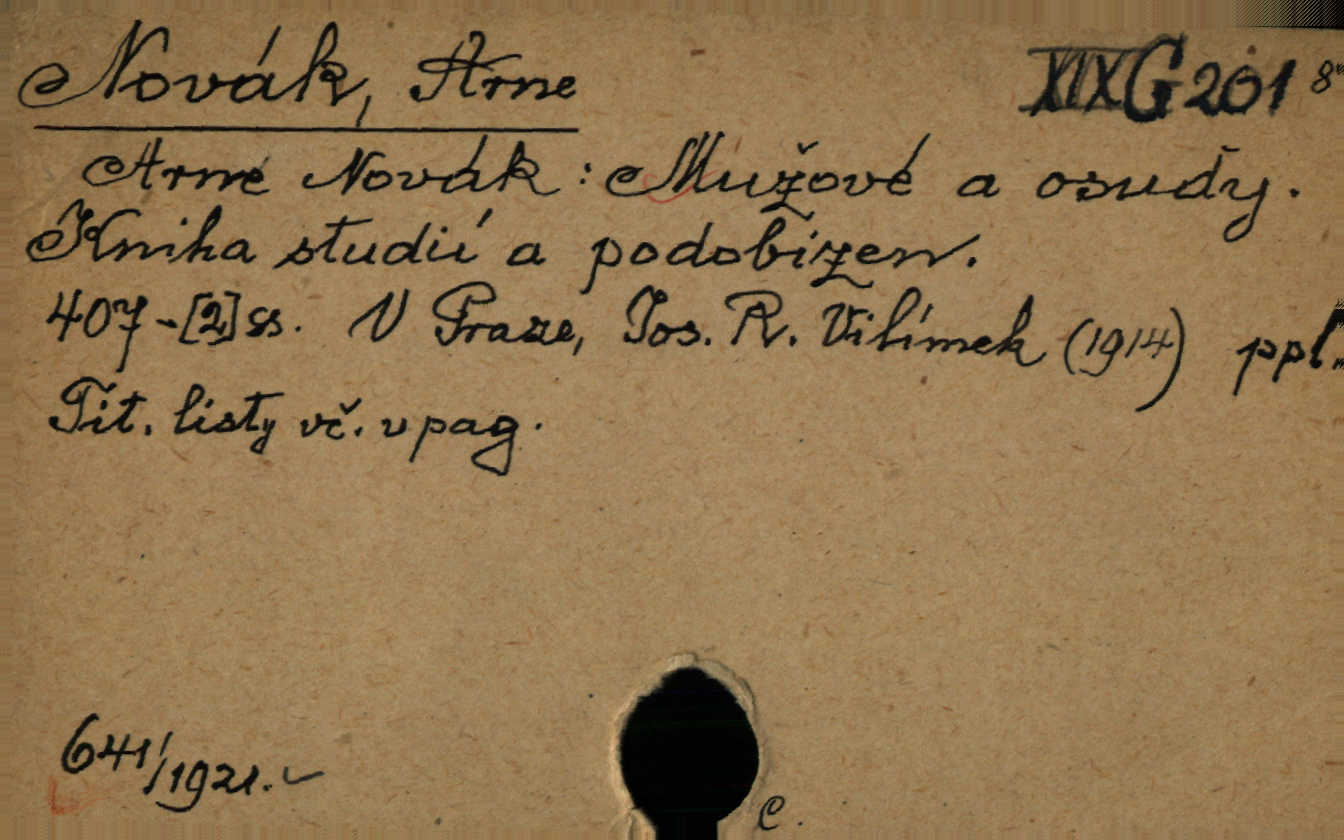 Novák, Arne XIX G 201 8°
Arne Novák: Mužové a osudy.
Kniha studií a podobizen.
407-[2] ss. V Praze, Jos. R. Vilímek (1914) ppl.
Tit. listy vč. v pag.
641/1921.
C.